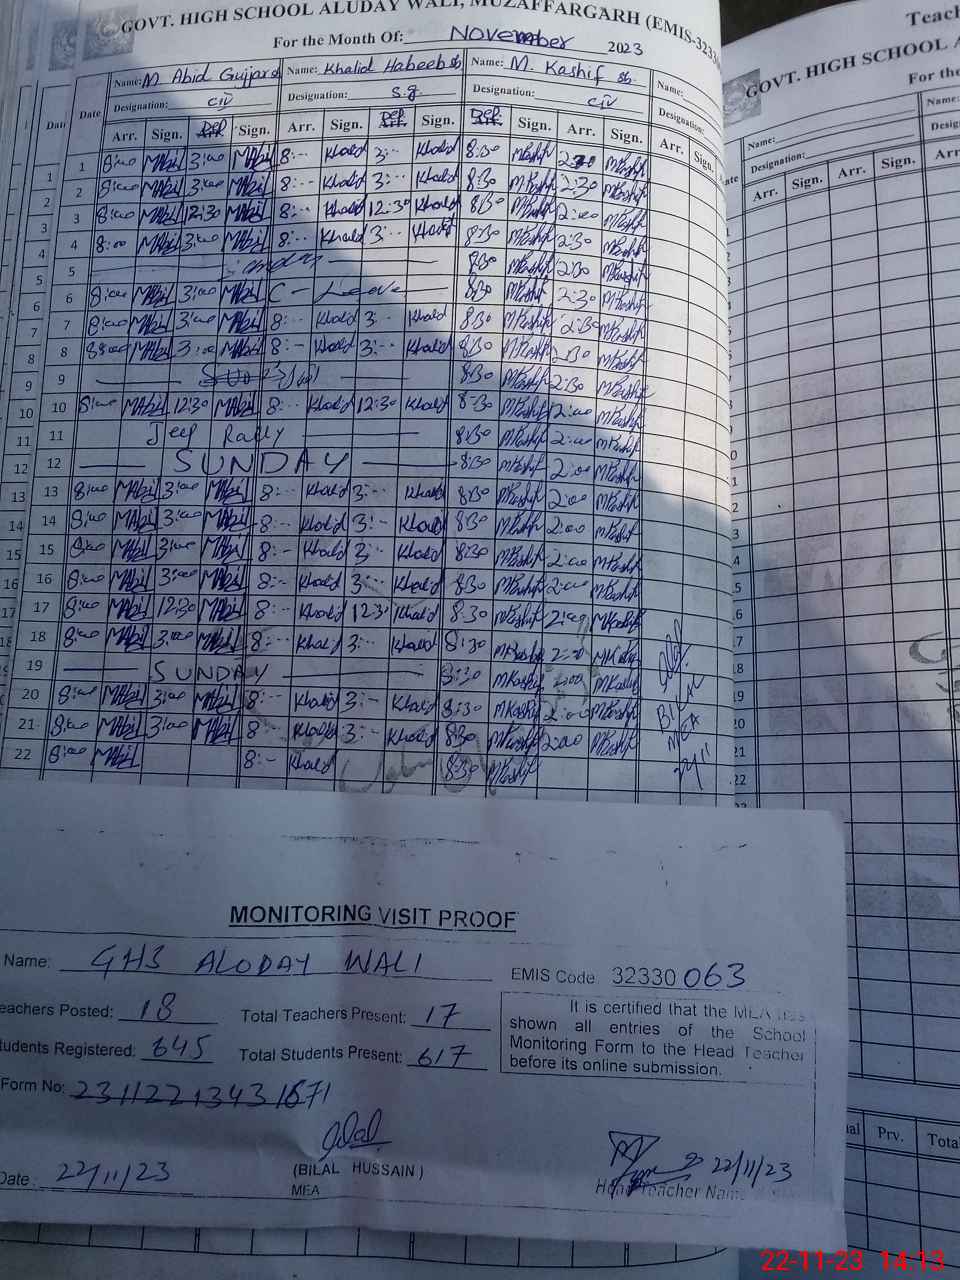 GOVT. HIGH SCHOOL ALUDAY WALI, MUZAFFARGARH (EMIS-3233
For the Month Of: November 2023
Date Name: M Abid Gujjar sb Name: Khalid Habeeb sb Name: M. Kashif sb. Name:
Designation: civ Designation: s.g. Designation: civ Designation:
Arr. Sign. Dep. Sign. Arr. Sign. Dep. Sign. Dep. Sign. Arr. Sign. Arr. Sign.
1 8:00 MAbid 3:00 MAbid 8:-- Khalid 3:-- Khalid 8:30 MKashif 2:30 MKashif
2 8:00 MAbid 3:00 MAbid 8:-- Khalid 3:-- Khalid 8:30 MKashif 2:30 MKashif
3 8:00 MAbid 12:30 MAbid 8:-- Khalid 12:30 Khalid 8:30 MKashif 2:00 MKashif
4 8:00 MAbid 3:00 MAbid 8:-- Khalid 3:-- Khalid 8:30 MKashif 2:30 MKashif
5 Sunday 8:30 MKashif 2:30 MKashif
6 8:00 MAbid 3:00 MAbid C - Leave 8:30 MKashif 2:30 MKashif
7 8:00 MAbid 3:00 MAbid 8:-- Khalid 3:-- Khalid 8:30 MKashif 2:30 MKashif
8 8:00 MAbid 3:00 MAbid 8:- Khalid 3:-- Khalid 8:30 MKashif 2:30 MKashif
9 8:30 MKashif 2:30 MKashif
10 8:00 MAbid 12:30 MAbid 8:-- Khalid 12:30 Khalid 8:30 MKashif 2:00 MKashif
11 Jeep Rally 8:30 MKashif 2:00 MKashif
12 SUNDAY 8:30 MKashif 2:00 MKashif
13 8:00 MAbid 3:00 MAbid 8:-- Khalid 3:-- Khalid 8:30 MKashif 2:00 MKashif
14 8:00 MAbid 3:00 MAbid 8:-- Khalid 3:- Khalid 8:30 MKashif 2:00 MKashif
15 8:00 MAbid 3:00 MAbid 8:- Khalid 3:-- Khalid 8:30 MKashif 2:00 MKashif
16 8:00 MAbid 3:00 MAbid 8:- Khalid 3:-- Khalid 8:30 MKashif 2:00 MKashif
17 8:00 MAbid 12:30 MAbid 8:-- Khalid 12:30 Khalid 8:30 MKashif 2:00 MKashif
18 8:00 MAbid 3:00 MAbid 8:-- Khalid 3:-- Khalid 8:30 MKashif 2:00 MKashif
19 SUNDAY 8:30 MKashif 2:00 MKashif
20 8:00 MAbid 3:00 MAbid 8:- Khalid 3:- Khalid 8:30 MKashif 2:00 MKashif
21 8:00 MAbid 3:00 MAbid 8:- Khalid 3:- Khalid 8:30 MKashif 2:00 MKashif
22 8:00 MAbid 8:- Khalid 8:30 MKashif
BILAL
MEA
22/11
Teach
GOVT. HIGH SCHOOL A
For the
Name: Name:
Designation:
Arr. Sign. Arr. Sign. Arr
MONITORING VISIT PROOF
Name: GHS ALODAY WALI EMIS Code 32330063
eachers Posted: 18 Total Teachers Present: 17
tudents Registered: 645 Total Students Present: 617
It is certified that the MEA has
shown all entries of the School
Monitoring Form to the Head Teacher
before its online submission.
Form No: 23112213431671
Date: 22/11/23 (BILAL HUSSAIN)
MEA
22/11/23
Head Teacher Name
Prv. Total
22-11-23 14:13